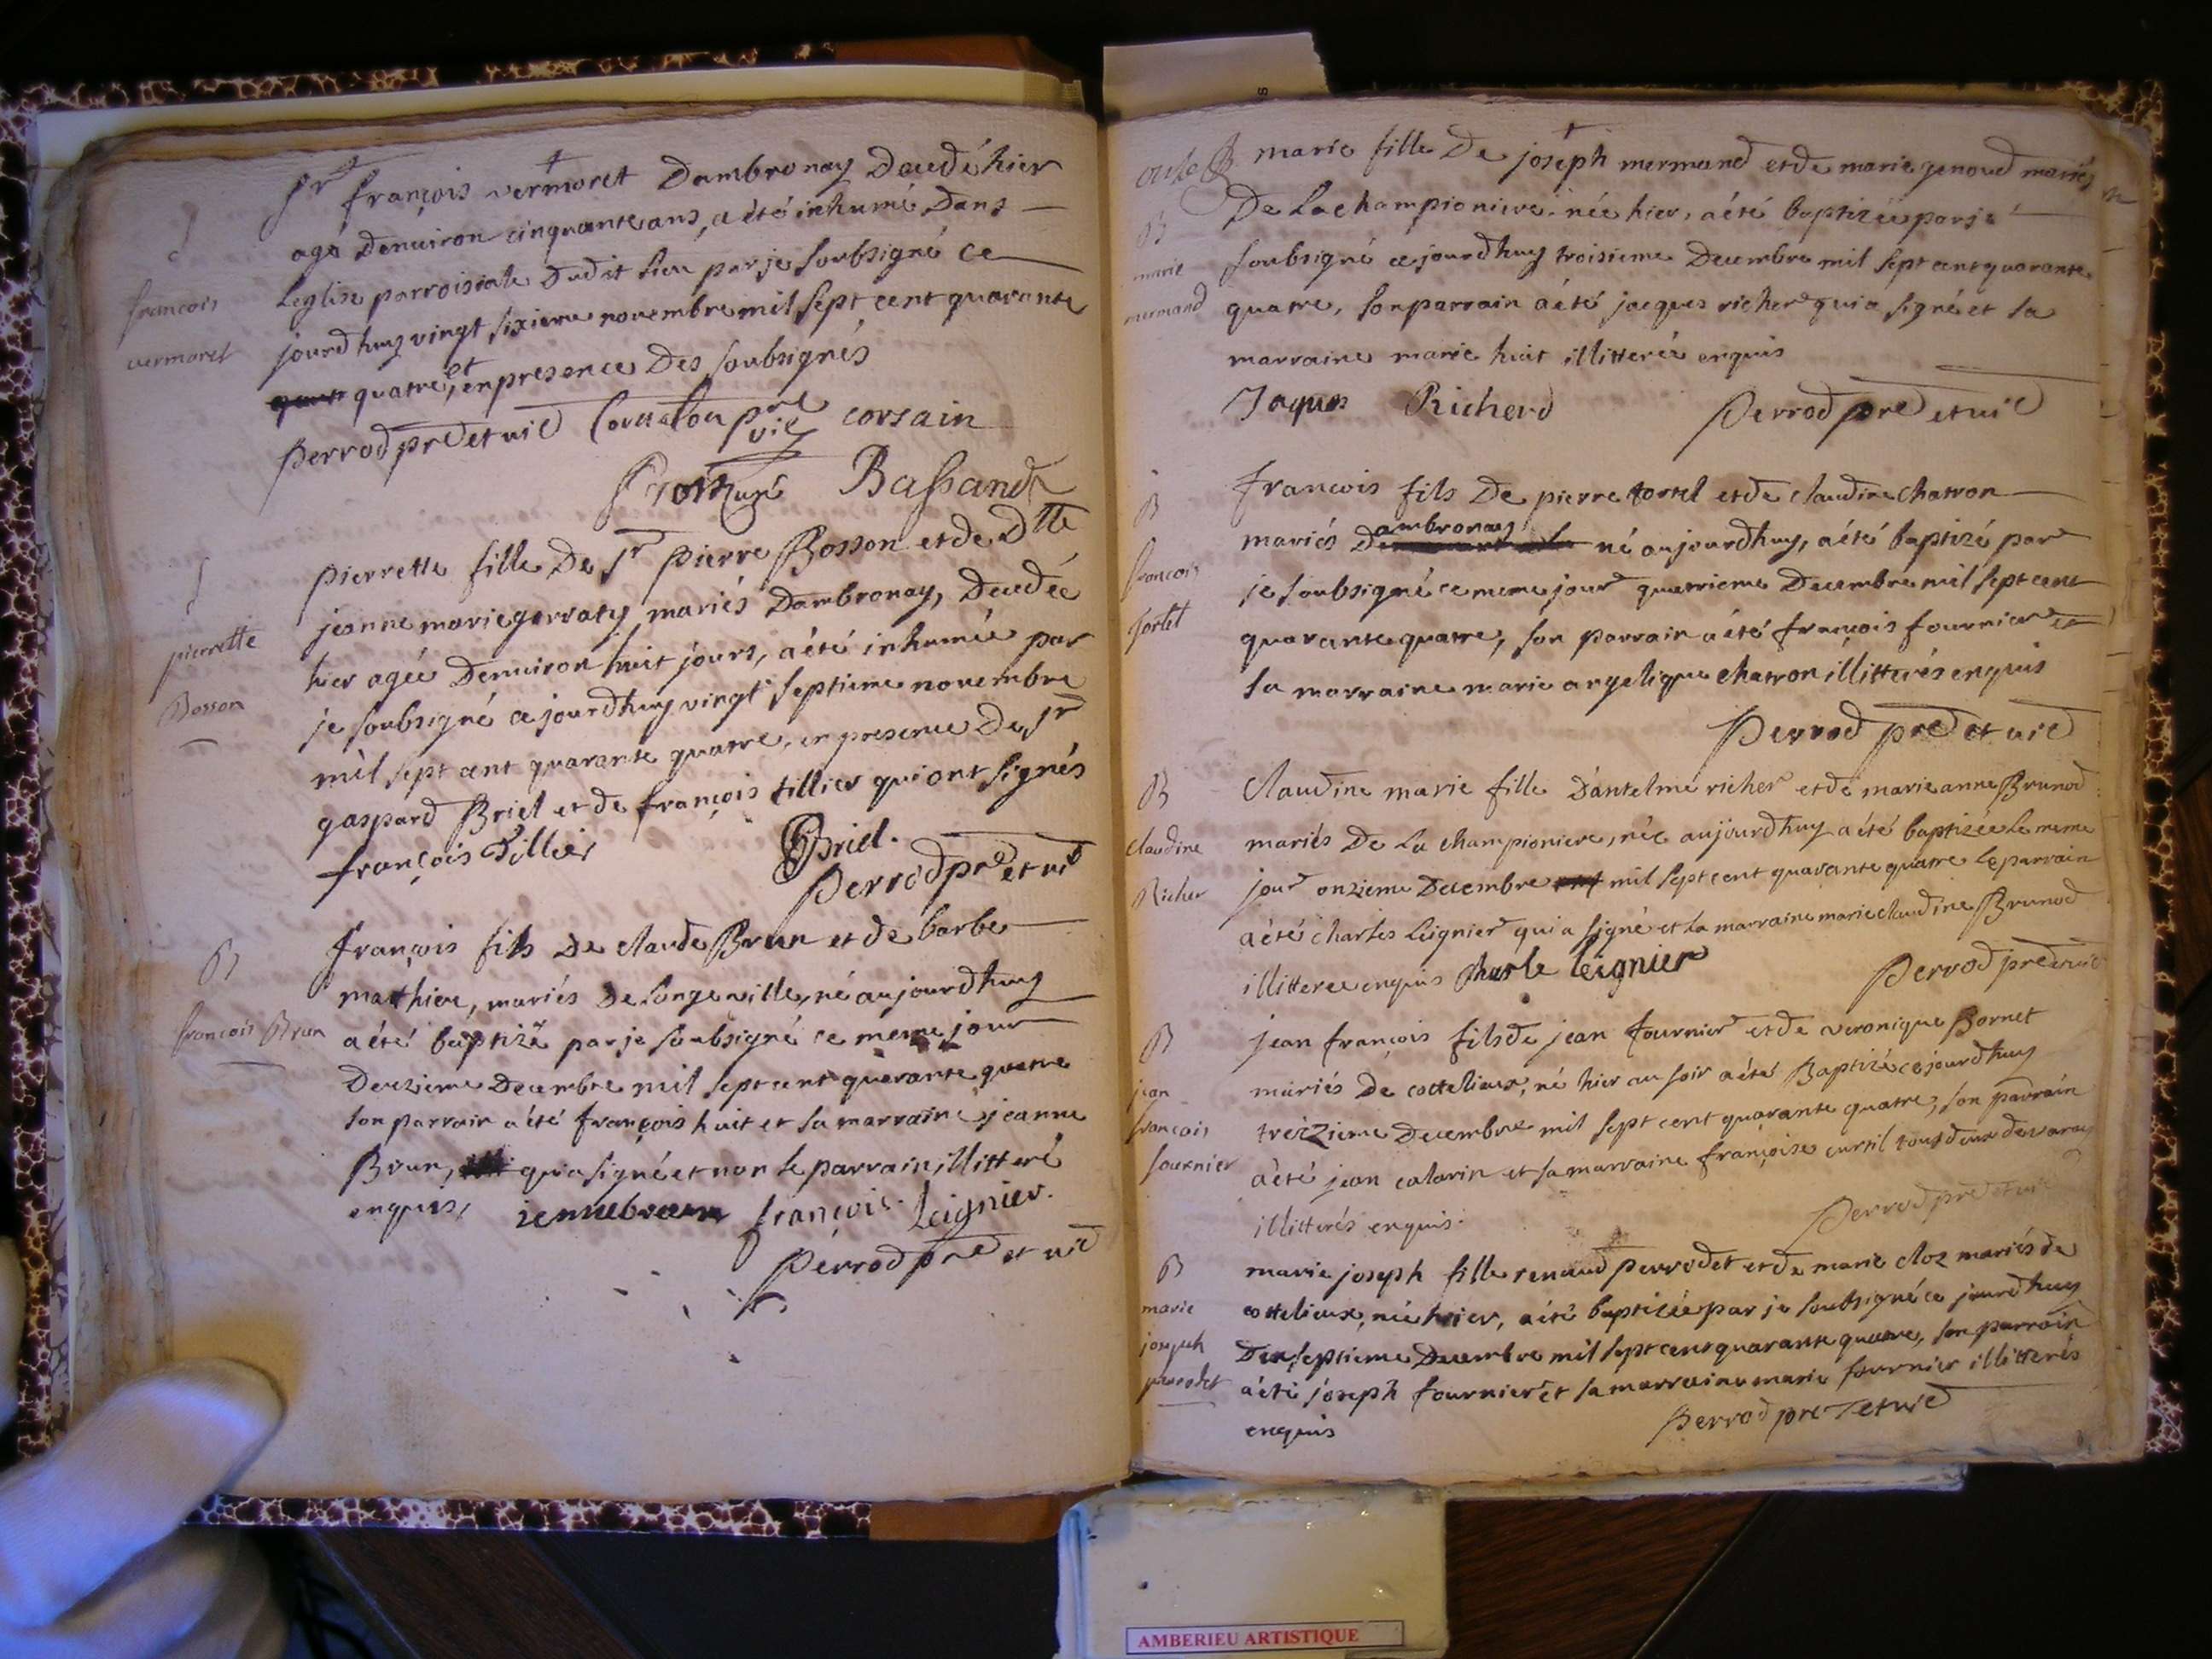 d
francois
vermoret
Sr françois vermoret Dambronay Decedé hier
agé Denuiron cinquante ans, a été inhumé Dans
Leglise parroissiale Dudit lieu par je soubsigné ce
jourdhuy vingt sixieme novembre mil sept cent quarante
quatre, et en presence Des soubsignés
perrod pre et vic pre vic corsain
Bassand
d
pierrette
Bosson
pierrette fille De Sr pierre Bosson et de Dlle
jeanne marie gervaty mariés Dambronay, Decedée
hier agée Denuiron huit jours, a été inhumée par
je soubsigné ce jourdhuy vingt septieme novembre
mil sept cent quarante quatre, en presence De Sr
gaspard Briel et de françois tillier qui ont signés
françois Tillier Briel.
Perrod pre et vic
B
francois Brun
françois fils De claude Brun et de barbe
mathieu, mariés De longeville, né aujourdhuy
a été baptizé par je soubsigné ce meme jour
Deuzieme Decembre mil sept cent quarante quatre
son parrain a été françois huit et sa marraine jeanne
Brun, qui a signé et non le parrain illitteré
enquis, jennebrun françois leignier.
Perrod pre et vic
B
marie
mermand
marie fille De joseph mermand et de marie genoud mariés
De La championiere née hier, a été baptizée par je
soubsigné ce jourdhuy troisieme Decembre mil sept cent quarante
quatre, son parrain a été jacques richer qui a signé et sa
marraine marie huit illitterée enquis
Jaques Richerd Perrod pre et vic
B
francois
tortel
francois fils De pierre tortel et de claudine chatron
mariés Dambronay né aujourdhuy, a été baptizé par
je soubsigné ce meme jour quatrieme Decembre mil sept cent
quarante quatre, son parrain a été françois fournier et
sa marraine marie angelique chatron illitterés enquis
Perrod pre et vic
B
claudine
Richer
Claudine marie fille Dantelme richer et de marie anne Brunod
mariés De La championiere, née aujourdhuy a été baptizée le meme
jour onzieme Decembre mil sept cent quarante quatre le parrain
a été charles leignier qui a signé et la marraine marie claudine Brunod
illitteree enquis charle leignier Perrod pre et vic
B
jean
francois
fournier
jean françois fils de jean fournier et de veronique Bornet
mariés De cottelieux, né hier au soir a été Baptizé ce jourdhuy
treizieme Decembre mil sept cent quarante quatre, son parrain
a été jean calarin et sa marraine françoise curtil tous deux
illitterés enquis. Perrod pre et vic
B
marie
joseph
perrodet
marie joseph fille renaud perrodet et de marie cloz mariés de
cottelieux, née hier, a été baptizée par je soubsigné ce jourdhuy
Dix septieme Decembre mil sept cent quarante quatre, son parrain
a été joseph fournier et sa marraine marie fournier illitterés
enquis Perrod pre et vic
AMBERIEU ARTISTIQUE